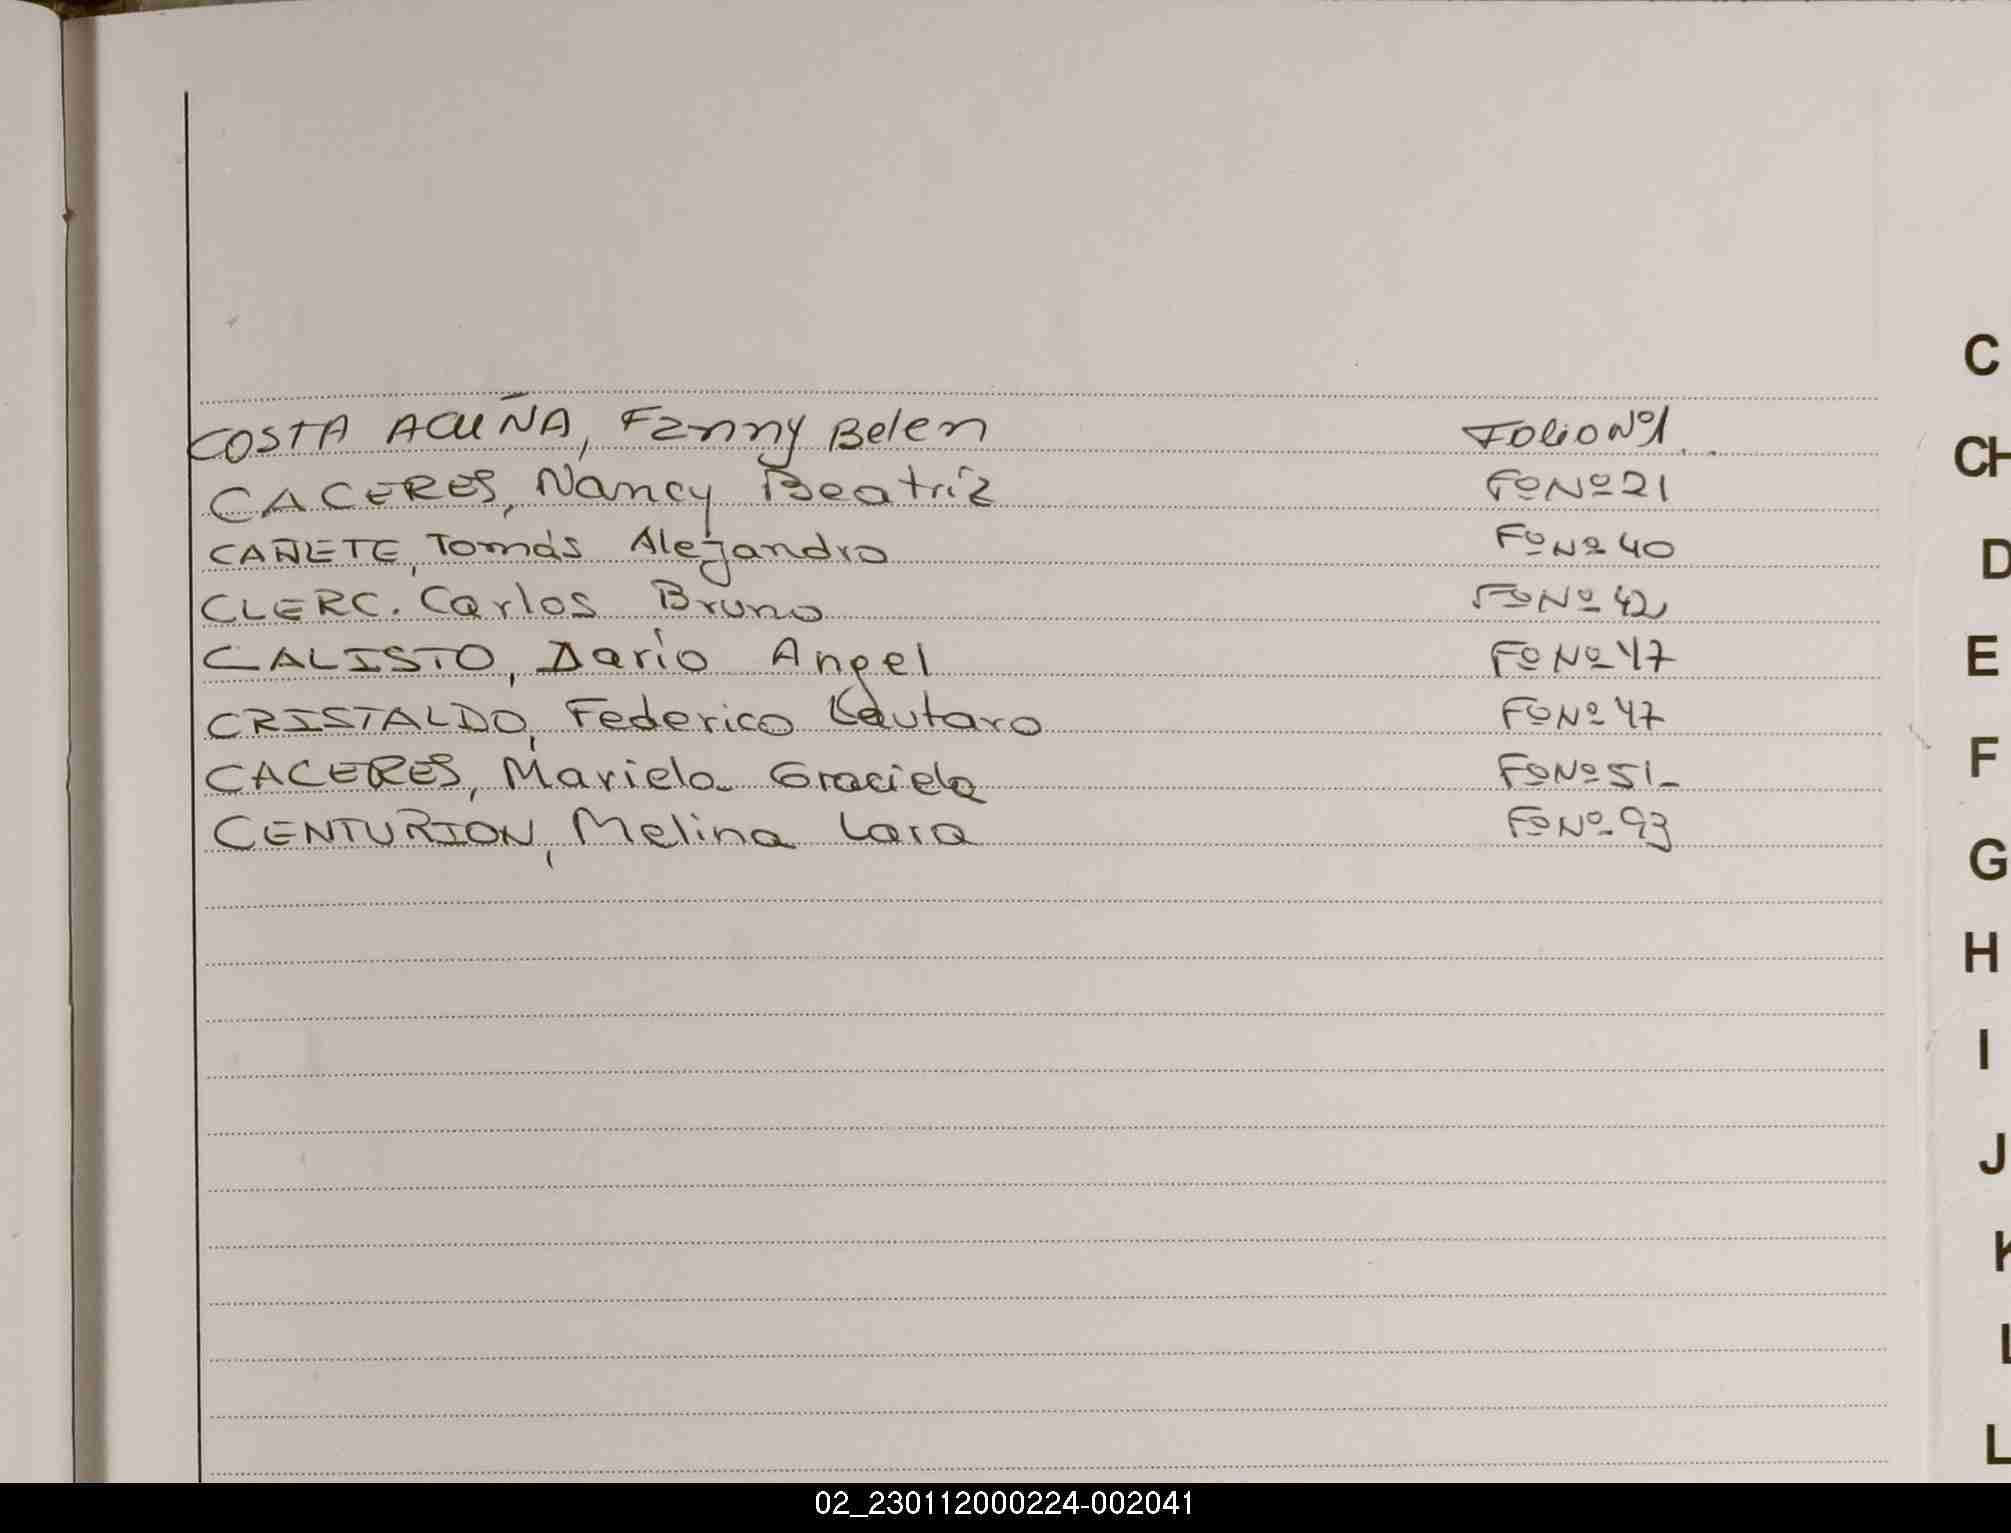 COSTA ACUÑA, Fanny Belen Folio Nº1
CACERES, Nancy Beatriz Fº Nº 21
CAÑETE, Tomás Alejandro Fº Nº 40
CLERC. Carlos Bruno Fº Nº 42
CALISTO, Darío Angel Fº Nº 47
CRISTALDO, Federico Lautaro Fº Nº 47
CACERES, Mariela Graciela Fº Nº 51-
CENTURION, Melina Lara Fº Nº 93
C
CH
D
E
F
G
H
I
J
K
L
L
02_230112000224-002041